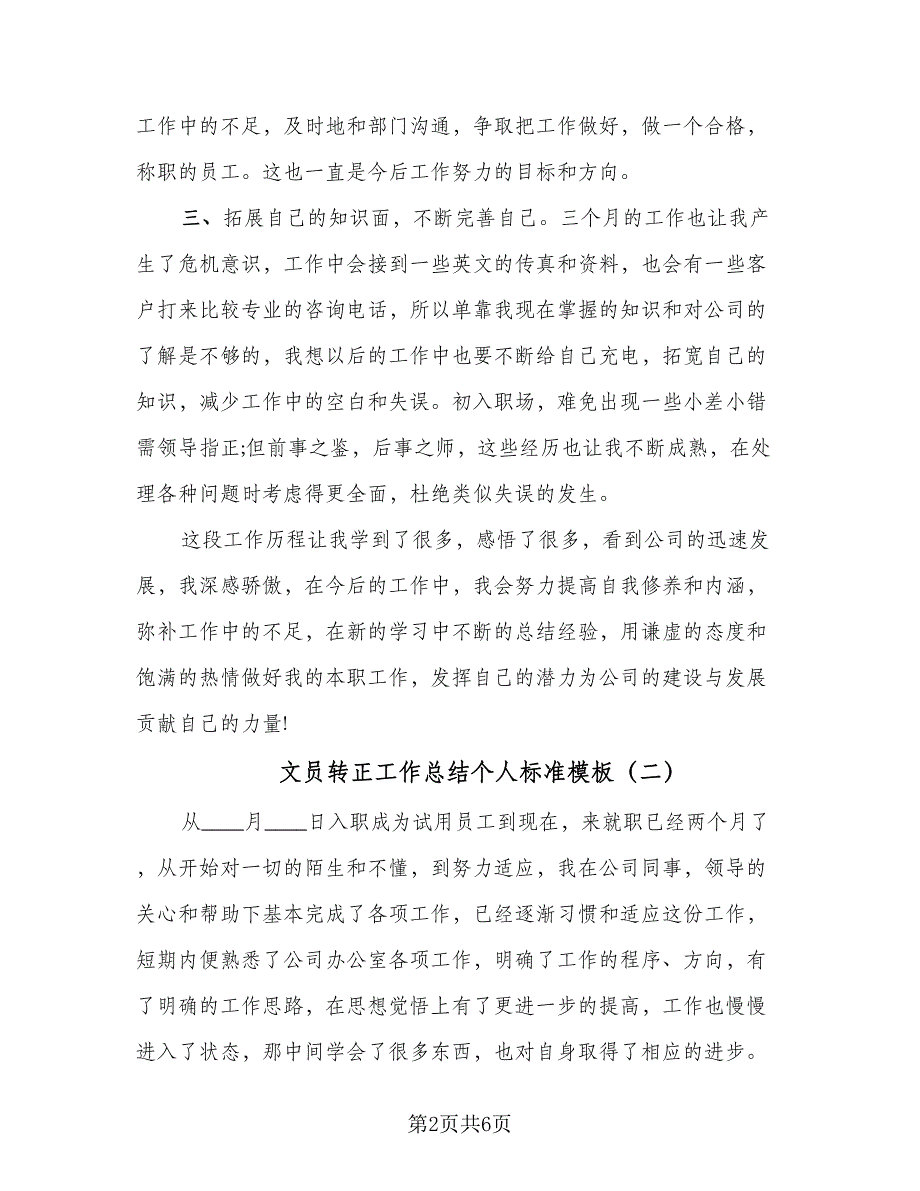 工作中的不足，及时地和部门沟通，争取把工作做好，做一个合格，
称职的员工。这也一直是今后工作努力的目标和方向。
三、拓展自己的知识面，不断完善自己。三个月的工作也让我产
生了危机意识，工作中会接到一些英文的传真和资料，也会有一些客
户打来比较专业的咨询电话，所以单靠我现在掌握的知识和对公司的
了解是不够的，我想以后的工作中也要不断给自己充电，拓宽自己的
知识，减少工作中的空白和失误。初入职场，难免出现一些小差小错
需领导指正;但前事之鉴，后事之师，这些经历也让我不断成熟，在处
理各种问题时考虑得更全面，杜绝类似失误的发生。
这段工作历程让我学到了很多，感悟了很多，看到公司的迅速发
展，我深感骄傲，在今后的工作中，我会努力提高自我修养和内涵，
弥补工作中的不足，在新的学习中不断的总结经验，用谦虚的态度和
饱满的热情做好我的本职工作，发挥自己的潜力为公司的建设与发展
贡献自己的力量!
文员转正工作总结个人标准模板（二）
从____月____日入职成为试用员工到现在，来就职已经两个月了
，从开始对一切的陌生和不懂，到努力适应，我在公司同事，领导的
关心和帮助下基本完成了各项工作，已经逐渐习惯和适应这份工作，
短期内便熟悉了公司办公室各项工作，明确了工作的程序、方向，有
了明确的工作思路，在思想觉悟上有了更进一步的提高，工作也慢慢
进入了状态，那中间学会了很多东西，也对自身取得了相应的进步。
第2页共6页